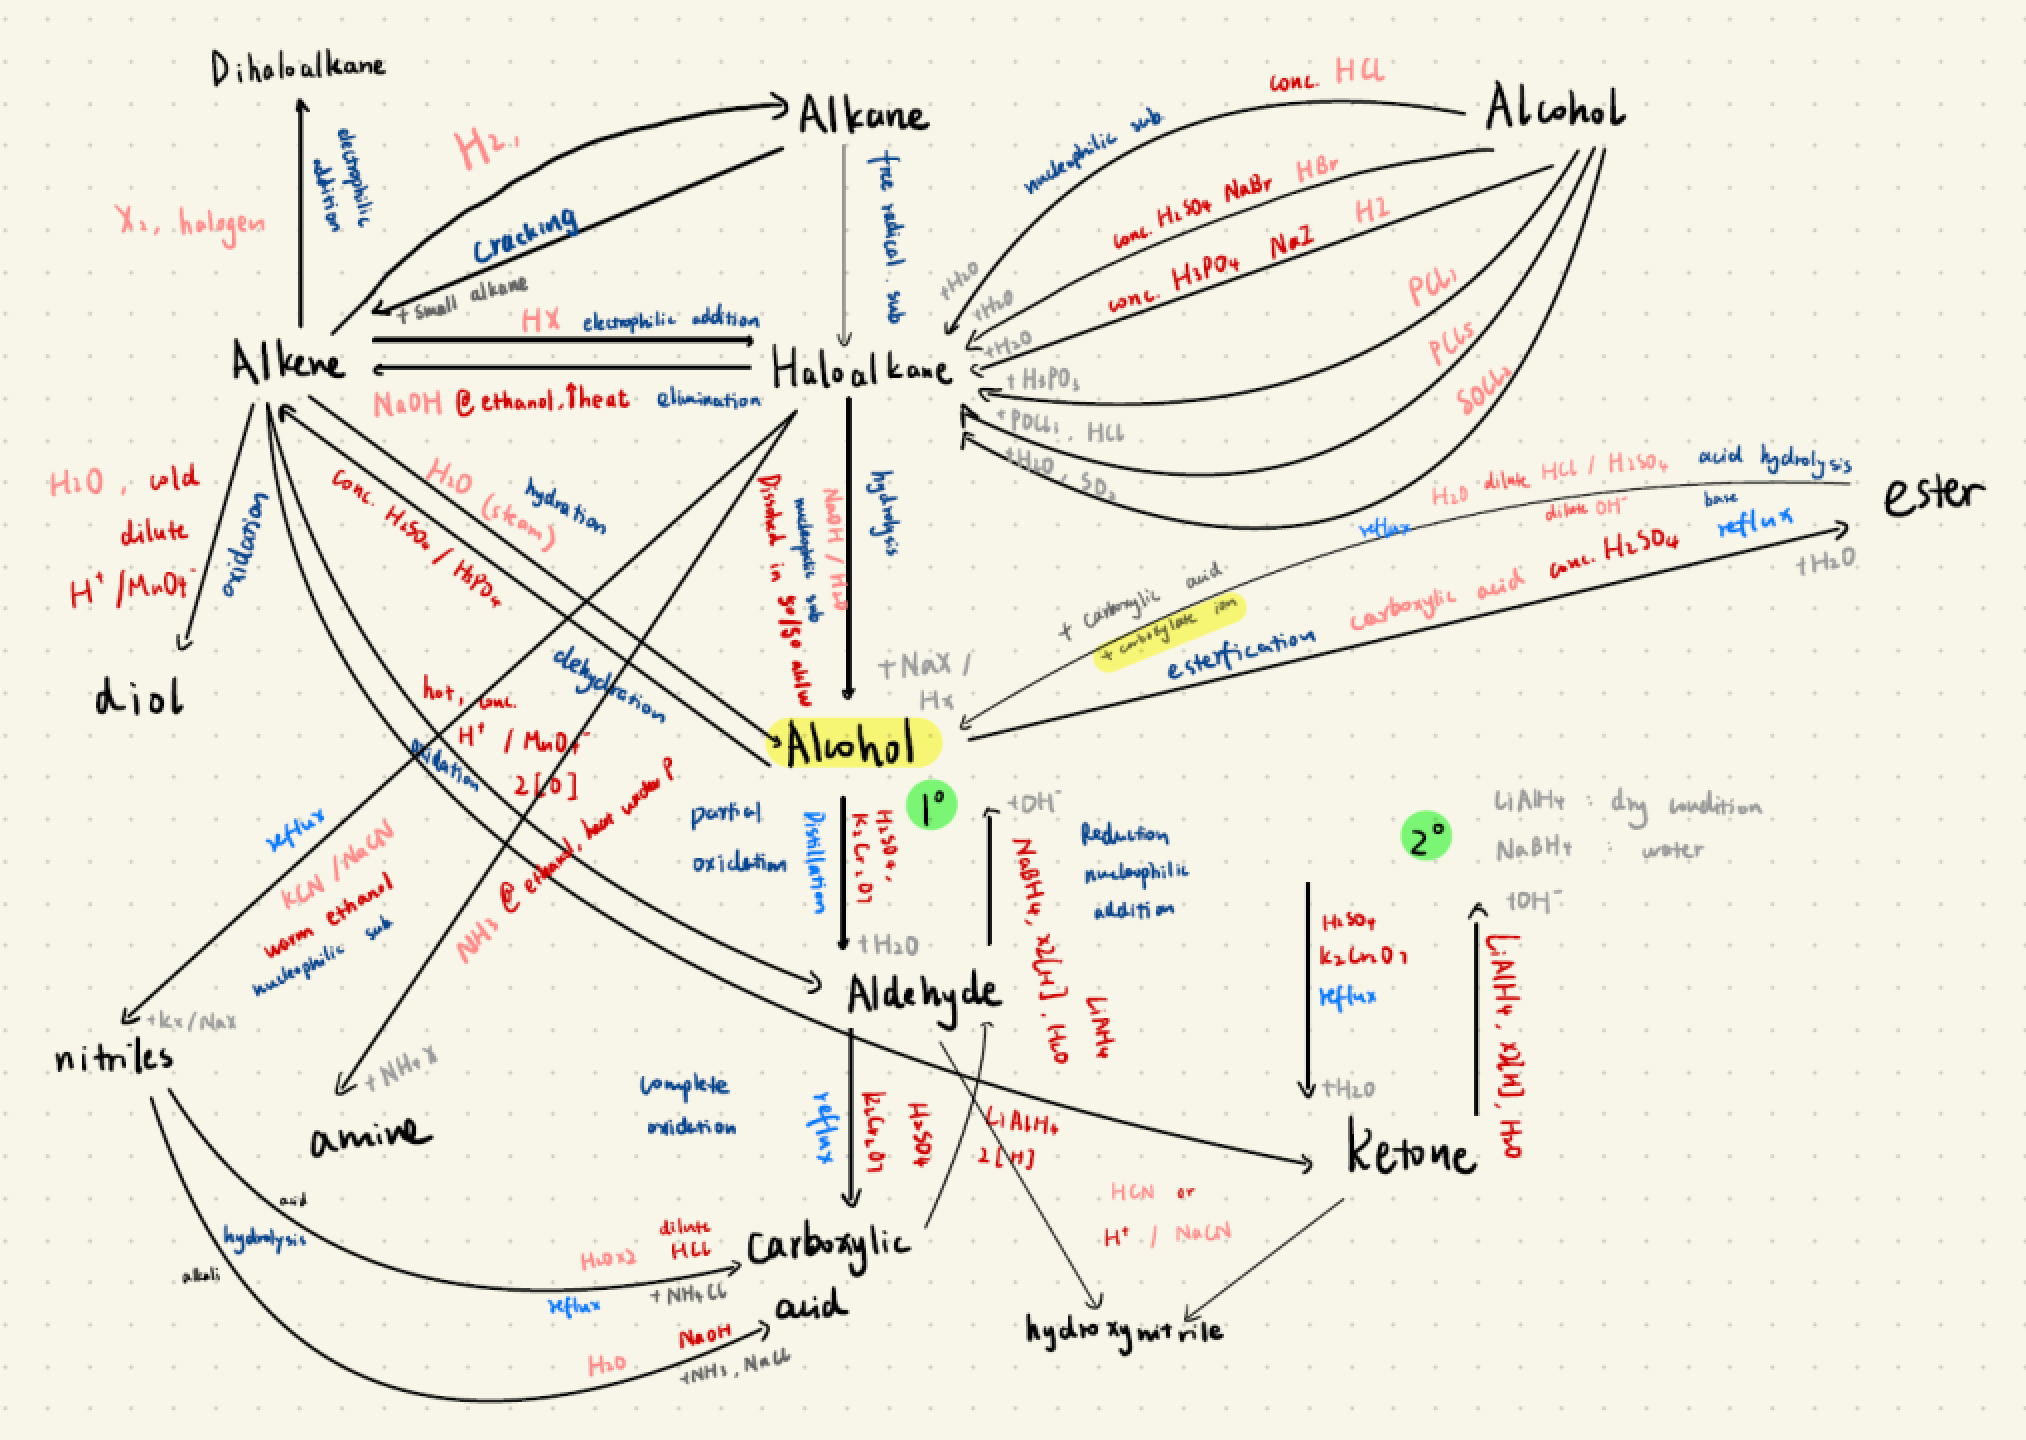 Dihaloalkane
electrophilic
addition
X₂, halogen
H₂,
Alkane
Cracking
+ small alkane
free radical. sub
conc. HCl
Alcohol
nucleophilic sub
conc. H₂SO₄ NaBr HBr
conc. H₃PO₄ NaI HI
PCl₃
PCl₅
SOCl₂
+H₂O
+H₂O
+H₂O
+ H₃PO₃
+ POCl₃, HCl
+H₂O, SO₂
Alkene
HX electrophilic addition
Haloalkane
NaOH @ethanol,↑heat elimination
H₂O, cold
dilute
H⁺/MnO₄⁻
oxidation
diol
H₂O (steam)
hydration
conc. H₂SO₄ / H₃PO₄
dehydration
hydrolysis
NaOH / H₂O
nucleophilic sub
Dissolved in 50/50 alc/w
+NaX /
Hx
H₂O dilute HCl / H₂SO₄ acid hydrolysis
dilute OH⁻ base
reflux
ester
+ carboxylic acid
+ carboxylate ion
esterfication carboxylic acid conc. H₂SO₄ reflux
+H₂O
Alcohol
1°
hot, conc.
H⁺ / MnO₄⁻
2[O]
oxidation
reflux
KCN /NaCN
warm ethanol
nucleophilic sub
+kx/Nax
nitriles
NH₃ @ethanol, heat under P
+NH₄X
amine
partial
oxidation
Distillation
H₂SO₄,
K₂Cr₂O₇
+H₂O
+OH⁻
NaBH₄, x2[H], H₂O
LiAlH₄
Reduction
nucleophilic
addition
Aldehyde
2°
LiAlH₄ : dry condition
NaBH₄ : water
+OH⁻
H₂SO₄
K₂Cr₂O₇
reflux
+H₂O
LiAlH₄, x2[H], H₂O
ketone
complete
oxidation
reflux
K₂Cr₂O₇
H₂SO₄
LiAlH₄
2[H]
HCN or
H⁺ / NaCN
acid
hydrolysis
alkali
H₂Ox2
dilute
HCl
reflux
+NH₄Cl
carboxylic
acid
H₂O
NaOH
+NH₃, NaCl
hydroxynitrile